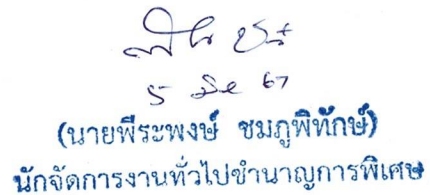 5 มิย 67
(นายพีระพงษ์ ชมภูพิทักษ์)
นักจัดการงานทั่วไปชำนาญการพิเศษ